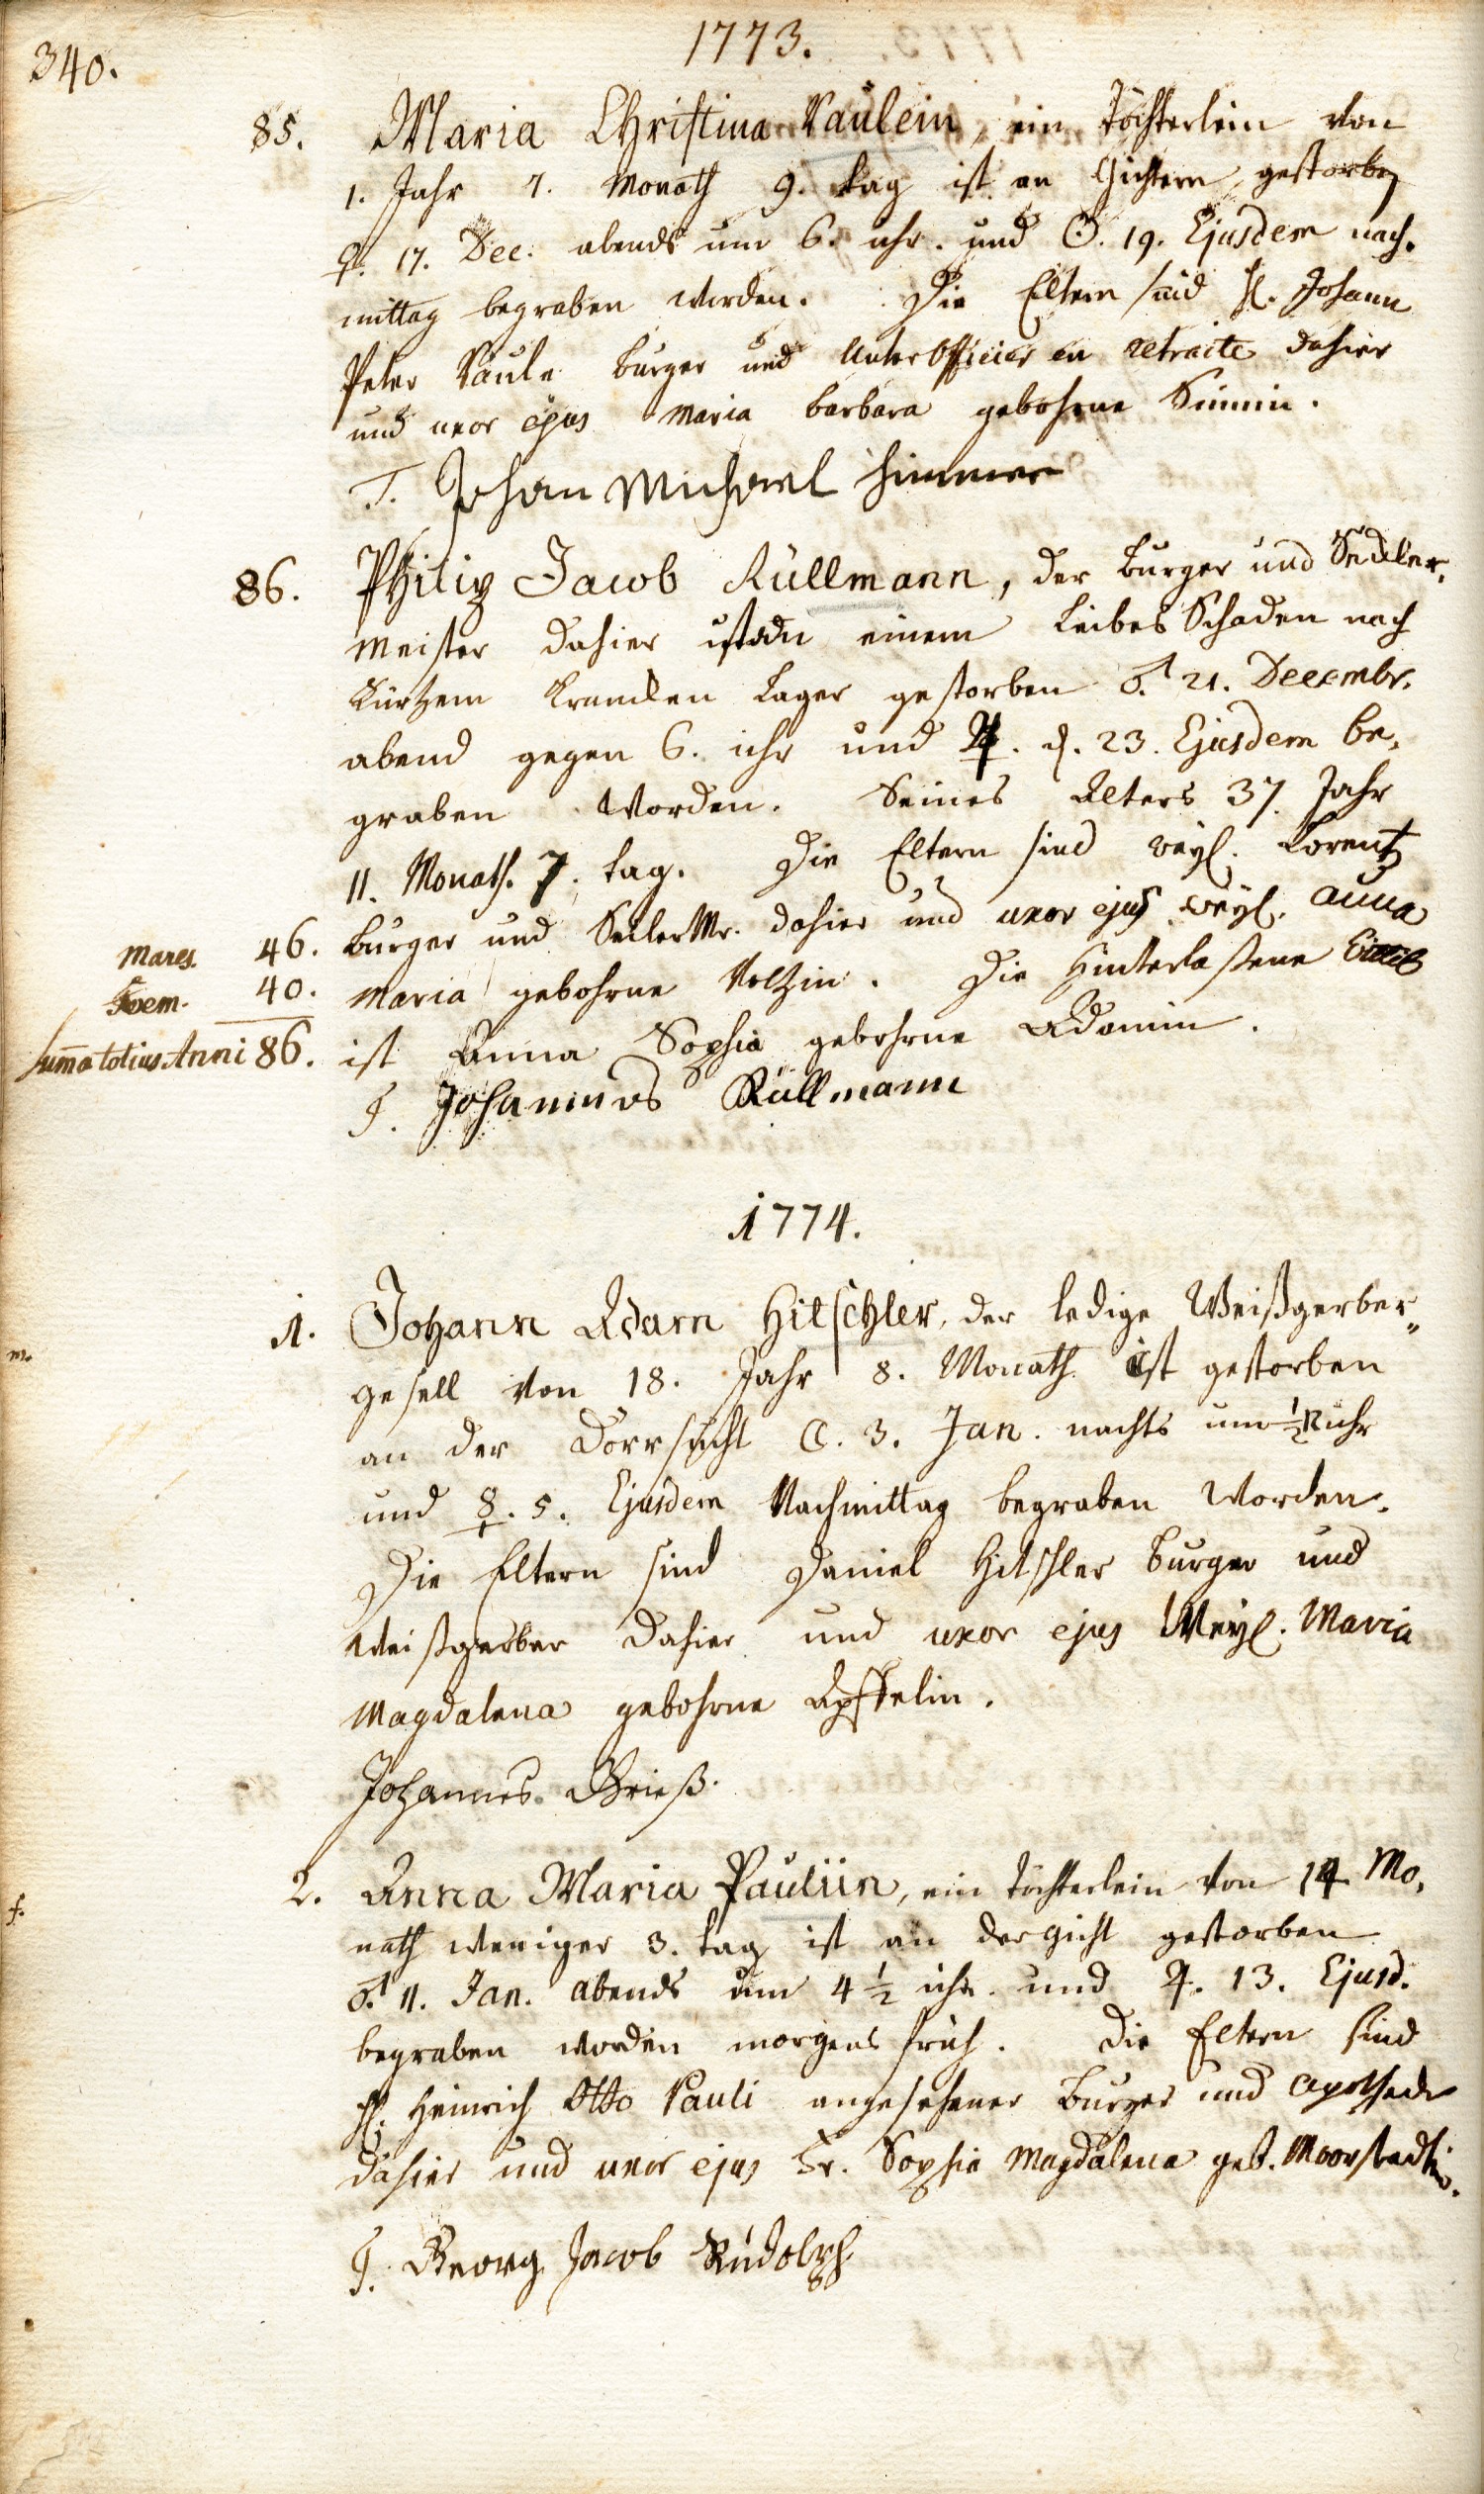 340.
1773.
85. Maria Christina Paulein, ein Töchterlein von
1. Jahr 7. Monath 9. tag ist an Gichtern gestorben
♀. 17. Dec. abends um 6. uhr. und ☉. 19. Ejusdem nach-
mittag begraben worden. Die Eltern sind H. Johann
Peter Paule burger und Unterofficier en retraite dahier
und uxor ejus Maria barbara gebohrne Simmin.
T. Johan Michael Simmer
86. Philip Jacob Rullmann, der burger und Seiler-
meister dahier ist an einem Leibes Schaden nach
kurtzem krancken Lager gestorben ♂. 21. Decembr.
abend gegen 6. uhr und ♃. d. 23. Ejusdem be-
graben worden. Seines Alters 37. Jahr
11. Monath. 7. tag. Die Eltern sind weyl. Lorentz
Mares. 46. burger und Seiler Mr. dahier und uxor ejus weyl. anna
Foem. 40. Maria gebohrne Voltzin. Die Hinterlaßene
Suma totius Anni 86. ist Anna Sophia gebohrne Adamin.
T. Johannes Rullmann
1774.
m. 1. Johann Adam Hitschler, der ledige Weißgerber-
gesell von 18. Jahr 8. Monath ist gestorben
an der Dörrsucht ☾. 3. Jan. nachts um ½ 12 uhr
und ☿. 5. Ejusdem Nachmittag begraben worden.
Die Eltern sind Daniel Hitschler burger und
Weißgerber dahier und uxor ejus Weyl. Maria
Magdalena gebohrne Apffelin.
Johannes Grieß.
f. 2. Anna Maria Pauliin, ein töchterlein von 14 Mo-
nath weniger 3. tag ist an der gicht gestorben
♂. 11. Jan. abends um 4 ½ uhr. und ♃. 13. Ejusd.
begraben worden morgens früh. Die Eltern sind
H. Heinrich Otto Pauli angesehener burger und Apothecker
dahier und uxor ejus Fr. Sophia Magdalena geb. Moorstadtin.
T. Georg Jacob Rudolph.